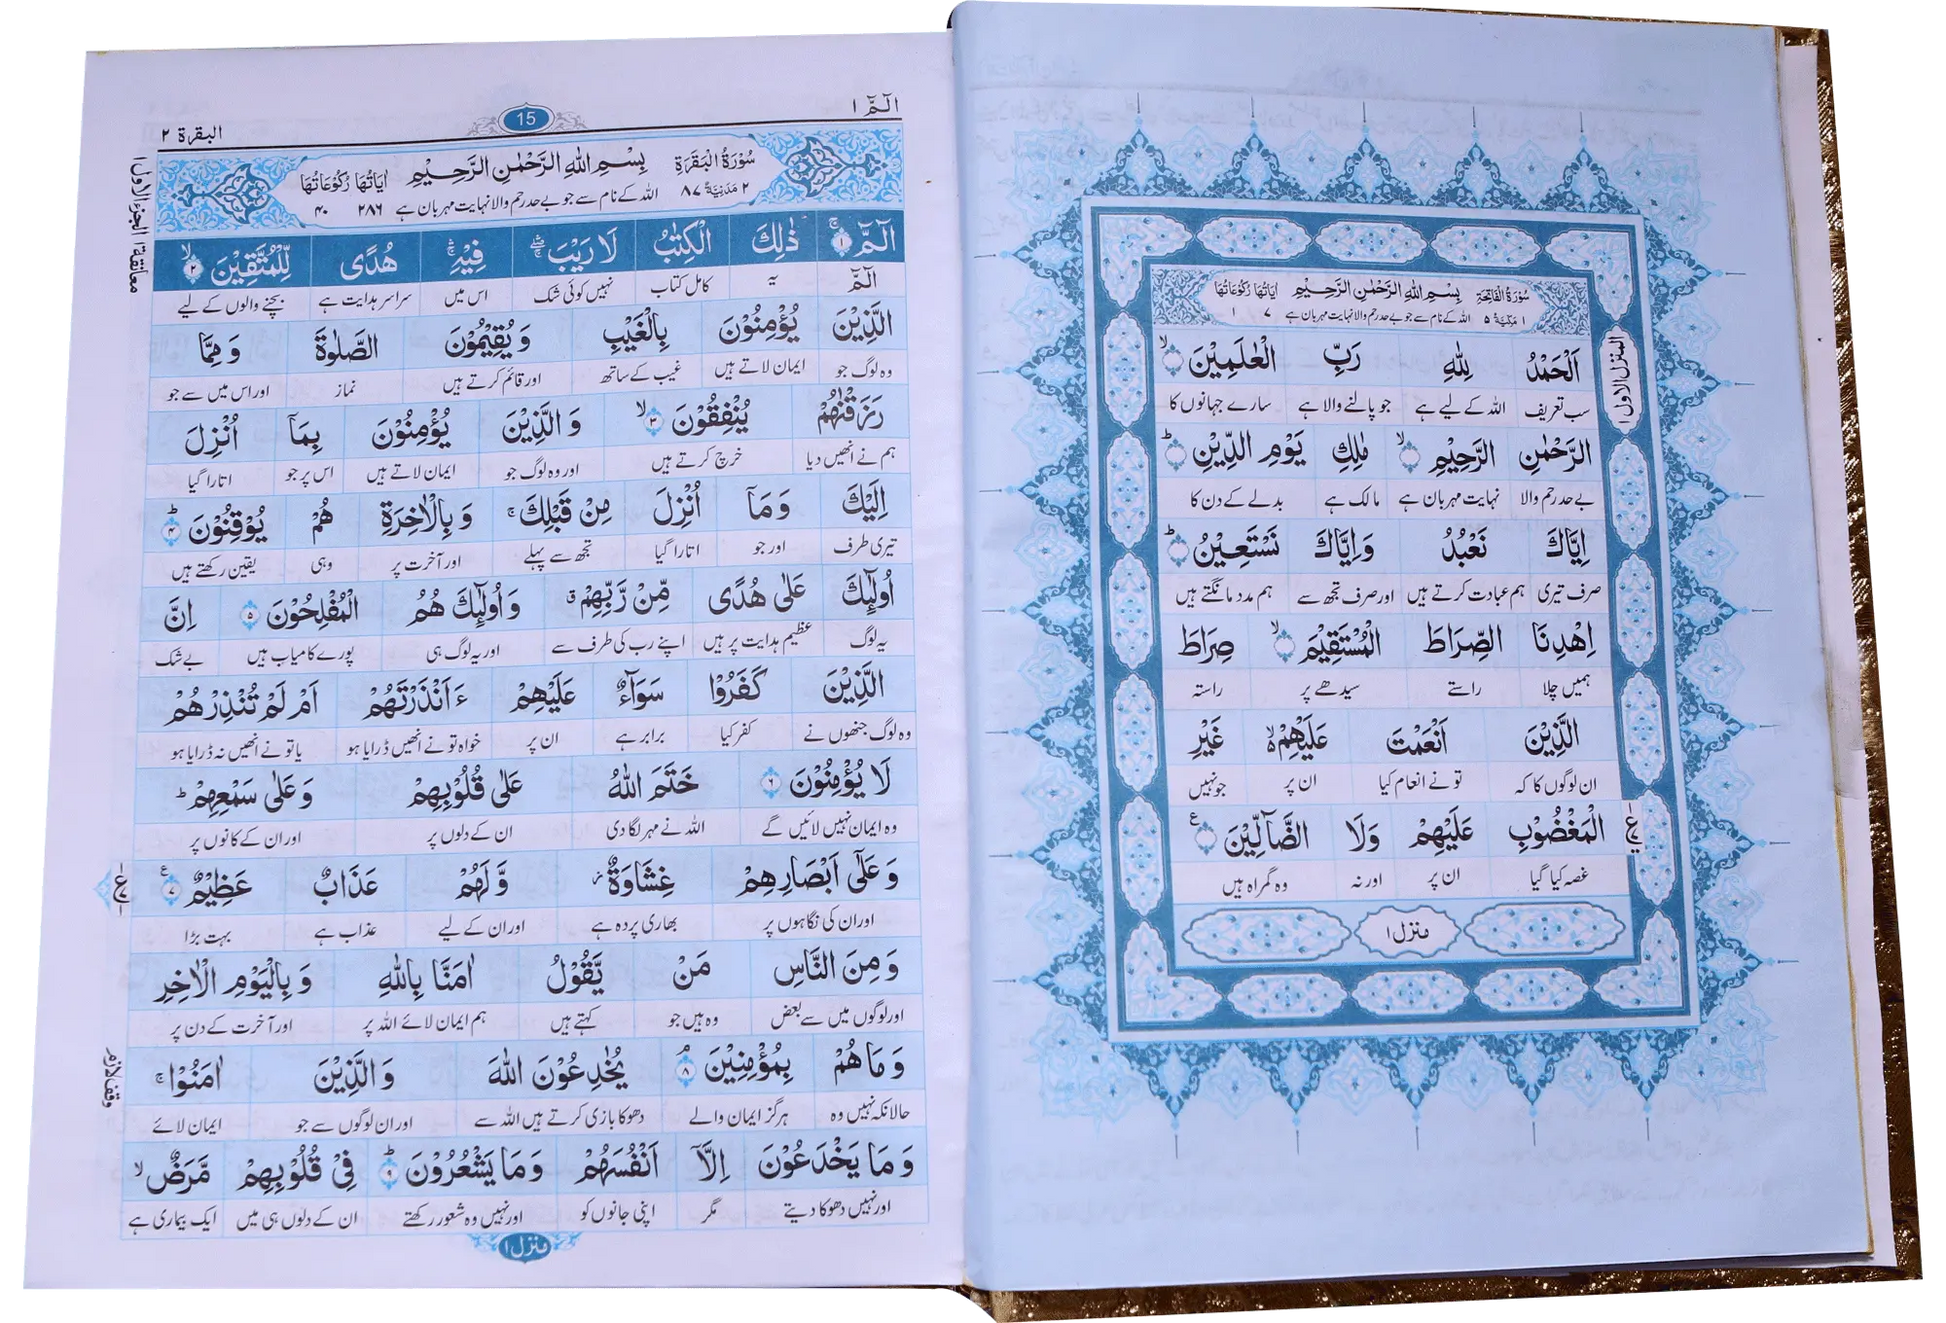 سُوْرَةُ الْفَاتِحَةِ بِسْمِ اللهِ الرَّحْمٰنِ الرَّحِيْمِ اٰيَاتُهَا رُكُوْعَاتُهَا
۱ مَكِّيَّةٌ ۵ اللہ کے نام سے جو بے حد رحم والا نہایت مہربان ہے ۷ ۱
المنزل الاول
اَلْحَمْدُ لِلّٰهِ رَبِّ الْعٰلَمِيْنَ ۙ
سب تعریف اللہ کے لیے ہے جو پالنے والا ہے سارے جہانوں کا
الرَّحْمٰنِ الرَّحِيْمِ ۙ مٰلِكِ يَوْمِ الدِّيْنِ ؕ
بے حد رحم والا نہایت مہربان ہے مالک ہے بدلے کے دن کا
اِيَّاكَ نَعْبُدُ وَاِيَّاكَ نَسْتَعِيْنُ ؕ
صرف تیری ہم عبادت کرتے ہیں اور صرف تجھ سے ہم مدد مانگتے ہیں
اِهْدِنَا الصِّرَاطَ الْمُسْتَقِيْمَ ۙ صِرَاطَ
ہمیں چلا راستے سیدھے پر راستہ
الَّذِيْنَ اَنْعَمْتَ عَلَيْهِمْ ۙ غَيْرِ
ان لوگوں کا کہ تو نے انعام کیا ان پر جو نہیں
الْمَغْضُوْبِ عَلَيْهِمْ وَلَا الضَّآلِّيْنَ
غصہ کیا گیا ان پر اور نہ وہ گمراہ ہیں
منزل ۱
الٓمّٓ ۱
15
البقرة ۲
سُوْرَةُ الْبَقَرَةِ بِسْمِ اللهِ الرَّحْمٰنِ الرَّحِيْمِ اٰيَاتُهَا رُكُوْعَاتُهَا
۲ مَدَنِيَّةٌ ۸۷ اللہ کے نام سے جو بے حد رحم والا نہایت مہربان ہے ۲۸۶ ۴۰
الٓمّٓ ۚ ۱ ذٰلِكَ الْكِتٰبُ لَا رَيْبَ ۛ فِيْهِ ۛ هُدًى لِّلْمُتَّقِيْنَ ۙ ۲
الٓمّٓ یہ کامل کتاب نہیں کوئی شک اس میں سراسر ہدایت ہے بچنے والوں کے لیے
الَّذِيْنَ يُؤْمِنُوْنَ بِالْغَيْبِ وَيُقِيْمُوْنَ الصَّلٰوةَ وَمِمَّا
وہ لوگ جو ایمان لاتے ہیں غیب کے ساتھ اور قائم کرتے ہیں نماز اور اس میں سے جو
رَزَقْنٰهُمْ يُنْفِقُوْنَ ۙ ۳ وَالَّذِيْنَ يُؤْمِنُوْنَ بِمَآ اُنْزِلَ
ہم نے انھیں دیا خرچ کرتے ہیں اور وہ لوگ جو ایمان لاتے ہیں اس پر جو اتارا گیا
اِلَيْكَ وَمَآ اُنْزِلَ مِنْ قَبْلِكَ ۚ وَبِالْاٰخِرَةِ هُمْ يُوْقِنُوْنَ ؕ ۴
تیری طرف اور جو اتارا گیا تجھ سے پہلے اور آخرت پر وہی یقین رکھتے ہیں
اُولٰٓئِكَ عَلٰى هُدًى مِّنْ رَّبِّهِمْ ۗ وَاُولٰٓئِكَ هُمُ الْمُفْلِحُوْنَ ۵ اِنَّ
یہ لوگ عظیم ہدایت پر ہیں اپنے رب کی طرف سے اور یہ لوگ ہی پورے کامیاب ہیں بے شک
الَّذِيْنَ كَفَرُوْا سَوَآءٌ عَلَيْهِمْ ءَاَنْذَرْتَهُمْ اَمْ لَمْ تُنْذِرْهُمْ
وہ لوگ جنھوں نے کفر کیا برابر ہے ان پر خواہ تو نے انھیں ڈرایا ہو یا تو نے انھیں نہ ڈرایا ہو
لَا يُؤْمِنُوْنَ ۶ خَتَمَ اللهُ عَلٰى قُلُوْبِهِمْ وَعَلٰى سَمْعِهِمْ ؕ
وہ ایمان نہیں لائیں گے اللہ نے مہر لگا دی ان کے دلوں پر اور ان کے کانوں پر
وَعَلٰٓى اَبْصَارِهِمْ غِشَاوَةٌ ز وَّلَهُمْ عَذَابٌ عَظِيْمٌ ۷
اور ان کی نگاہوں پر بھاری پردہ ہے اور ان کے لیے عذاب ہے بہت بڑا
وَمِنَ النَّاسِ مَنْ يَّقُوْلُ اٰمَنَّا بِاللهِ وَبِالْيَوْمِ الْاٰخِرِ
اور لوگوں میں سے بعض وہ ہیں جو کہتے ہیں ہم ایمان لائے اللہ پر اور آخرت کے دن پر
وَمَا هُمْ بِمُؤْمِنِيْنَ ۘ ۸ يُخٰدِعُوْنَ اللهَ وَالَّذِيْنَ اٰمَنُوْا ۚ
حالانکہ نہیں وہ ہرگز ایمان والے دھوکا بازی کرتے ہیں اللہ سے اور ان لوگوں سے جو ایمان لائے
وَمَا يَخْدَعُوْنَ اِلَّآ اَنْفُسَهُمْ وَمَا يَشْعُرُوْنَ ؕ ۹ فِيْ قُلُوْبِهِمْ مَّرَضٌ ۙ
اور نہیں دھوکا دیتے مگر اپنی جانوں کو اور نہیں وہ شعور رکھتے ان کے دلوں ہی میں ایک بیماری ہے
معانقة ۱ الجزء الاول ۱
وقف لازم
منزل ۱